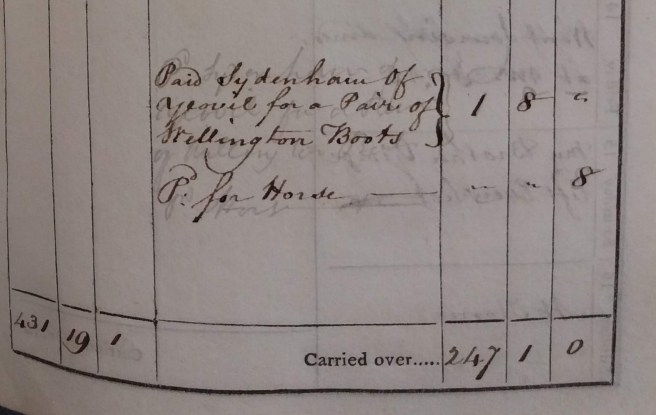 Paid Sydenham Of
Yeovil for a Pair of
Wellington Boots } 1 8 "
Pd. for Horse — " " 8
431 19 1 Carried over..... 247 1 0